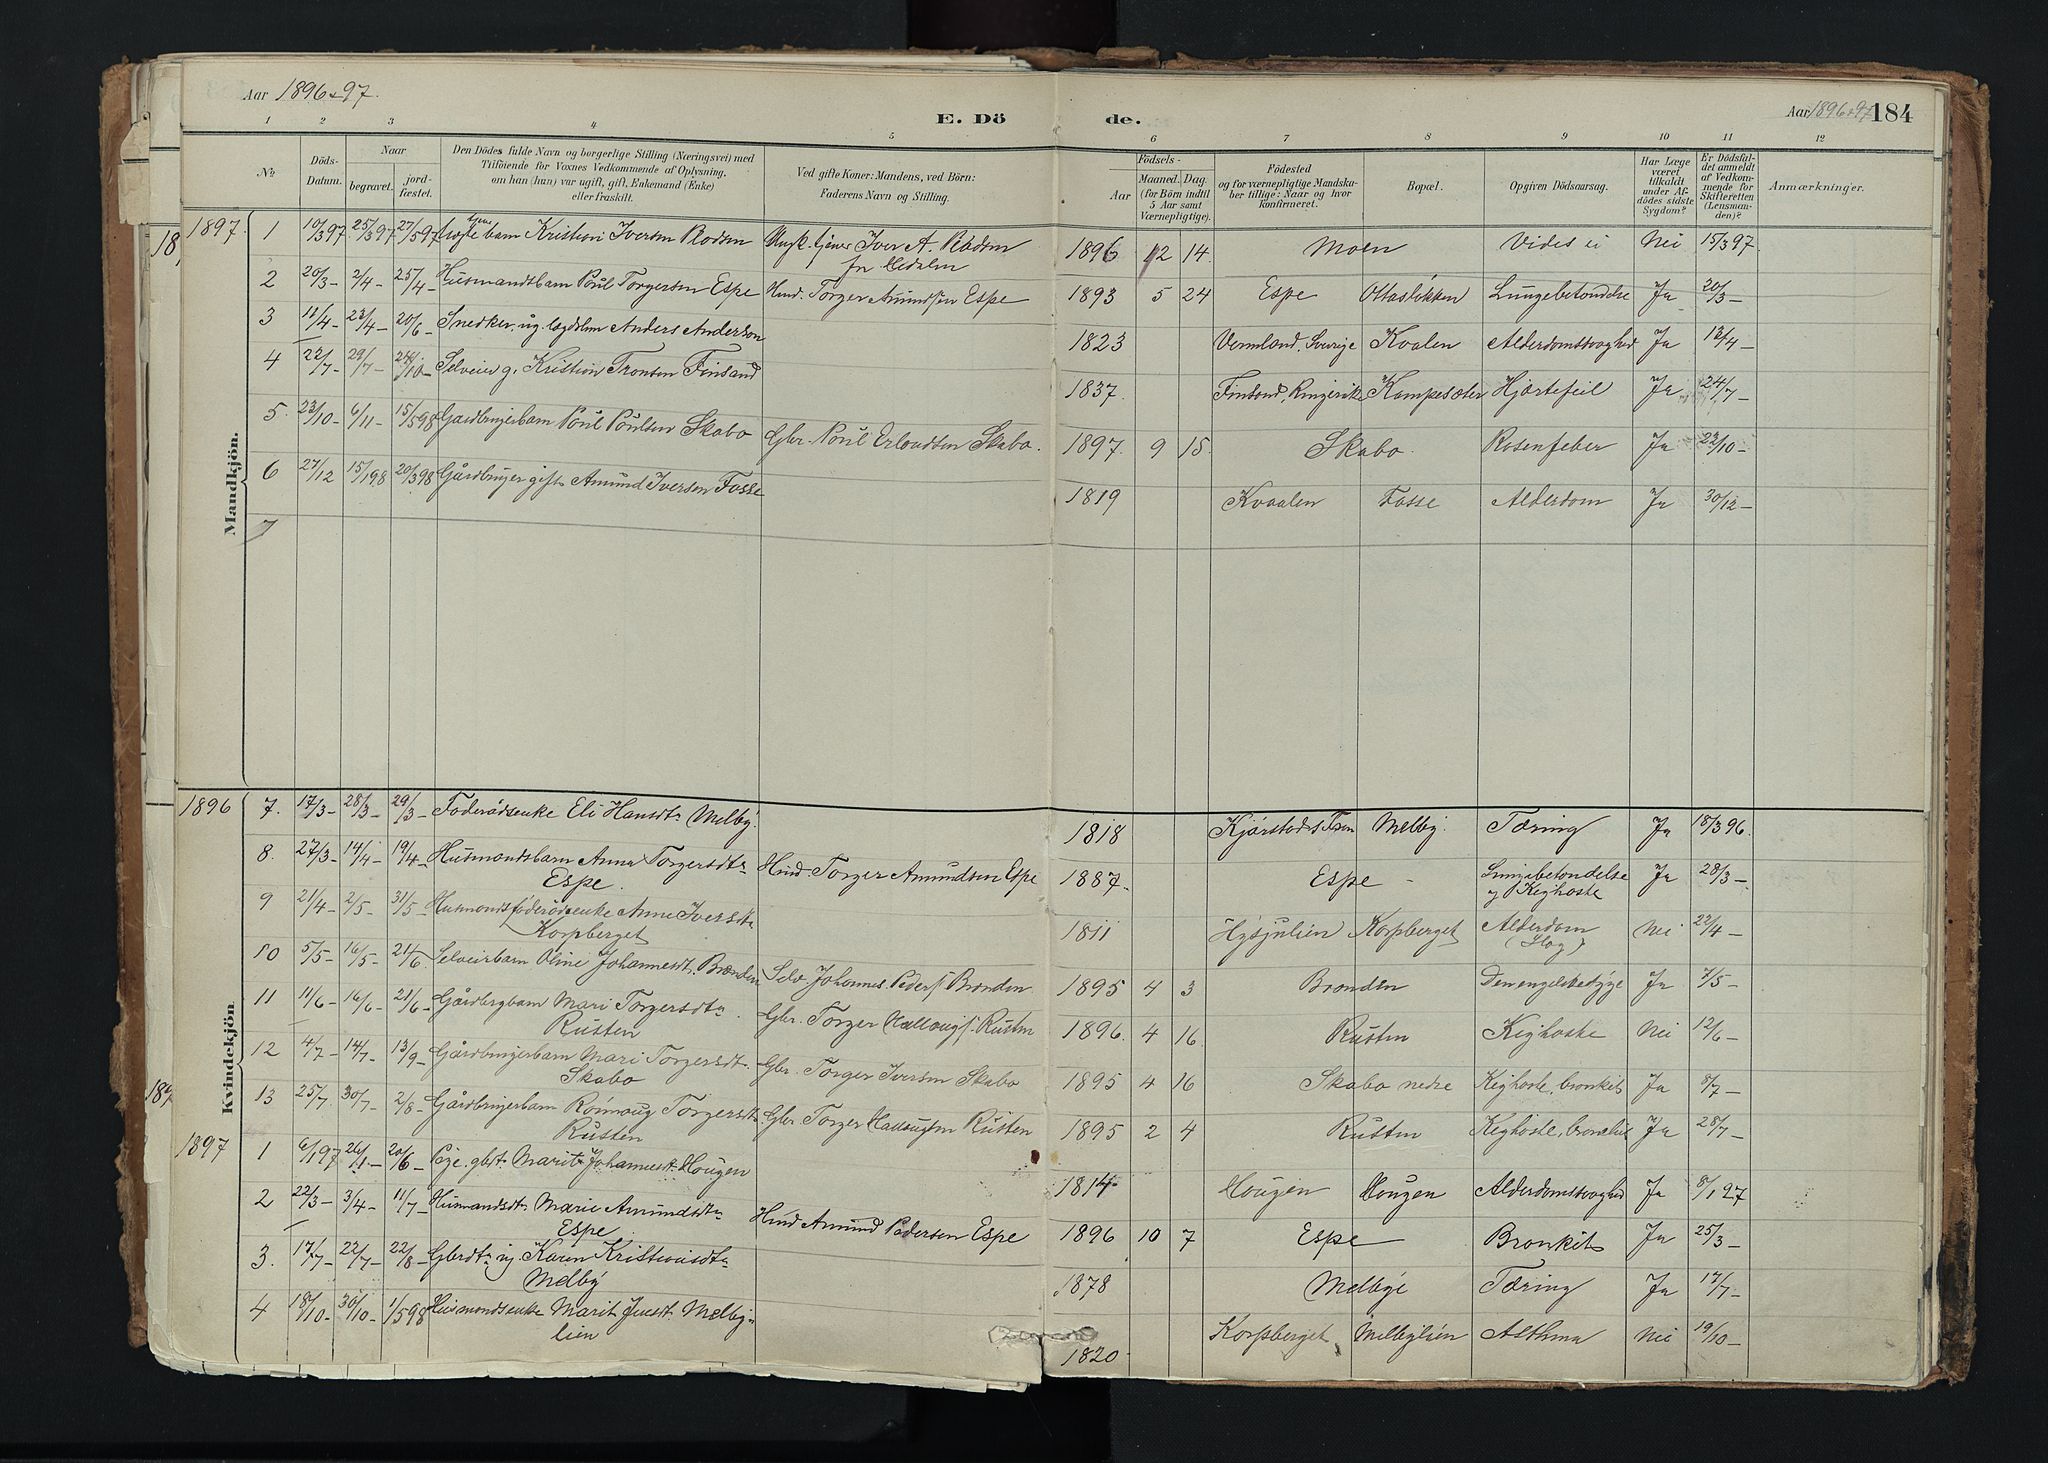 Aar 1896 & 97.
E. Dö
de.
Aar 1896 & 97 184
1 2 3 4 5 6 7 8 9 10 11 12
№
Döds-Datum.
Naar
begravet.
jord-fæstet.
Den Dödes fulde Navn og borgerlige Stilling (Næringsvei) med
Tilföiende for Voxnes Vedkommende af Oplysning,
om han (hun) var ugift, gift, Enkemand (Enke)
eller fraskilt.
Ved gifte Koner: Mandens, ved Börn:
Faderens Navn og Stilling.
Födsels-
Aar
Maaned. Dag.
(for Börn indtil
5 Aar samt
Værnepligtige).
Födested
og for værnepligtige Mandska-
ber tillige: Naar og hvor
konfirmeret.
Bopæl.
Opgiven Dödsaarsag.
Har Læge
været
tilkaldt
under Af-
dödes sidste
Sygdom?
Er Dödsfal-
det anmeldt
af Vedkom-
mende for
Skifteretten
(Lensman-
den)?
Anmærkninger.
Mandkjön.
1897. 1 10/3 97 25/3 97 27/5 97 barn Kristian Iversen 1896 12 14. Moen Vides ei Nei 15/3 97.
fra Hedalen
2 20/3- 2/4- 25/4- Husmandsbarn Poul Torgersen Espe Hmd. Torger Amundsen Espe 1893 5 24 Espe Ottasløkken Lungebetændelse Ja 20/3-
3 11/4- 23/4- 20/6- Snedker, ug. lægdslem Anders Anderson 1823 Vermland, Sverige Kvalen Alderdomssvaghed Ja 13/4-
4 22/7- 29/7- 24/10- Selveier g. Kristian Tronsen Finsand 1837. Finsand, Ringerike Kampesæter Hjertefeil Ja 24/7-
5. 23/10- 6/11- 15/5 98 Gardbrugerbarn Poul Poulsen Skabo Gbr. Poul Erlandsen Skabo. 1897. 9 15. Skabo. Rosenfeber Ja 23/10-
6 27/12 15/1 98 20/3 98 Gårdbruger gift Amund Iversen Fosse 1819 Kvaalen Fosse Alderdom Ja 30/12-
7
Kvindekjön.
1896 7. 17/3- 28/3- 29/3- Føderådsenke Eli Hansdtr Melby. 1818 Kjørstad, S. Fron Melby. Tæring Ja 18/3 96.
8. 27/3- 14/4- 19/4- Husmandsbarn Anna Torgersdtr Hmd. Torger Amundsen Espe 1887. Espe - Lungebetændelse Ja 28/3-
Espe. og Kighoste
9 21/4- 2/5- 31/5- Husmandsføderådsenke Anne Iversdtr 1811 Korpberget Alderdom Nei 22/4-
Korpberget
10 5/5- 16/5- 21/6. Selveierbarn Oline Johannesdt. Brænden Selv. Johannes Peders. Brænden. 1895 4 3 Brænden Den engelske syge Ja 7/5-
11 11/6- 16/6- 21/6- Gårdbrgbarn Mari Torgersdtr. Gbr. Torger Hallvaigs. Rusten 1896. 4 16. Rusten Kighoste Nei 12/6-
Rusten
12 4/7- 14/7- 13/9- Gårdbrugerbarn Mari Torgersdt. Gbr. Torger Iversen Skabo 1895 4 16 Skabo nedre Kighoste, bronkit Ja 8/7-
Skabo
13 25/7. 30/7- 2/8- Gårdbrugerbarn Rønnaug Torgersdtr. Gbr. Torger Rusten 1895 2 4 Rusten Kighoste, bronchit Ja 28/7-
Rusten
1897 1 6/1 97 26/1- 20/6- Pige. gbdt. Marit Johannesdt. Hougen 1814- Hougen Hougen Alderdomssvaghed Ja 8/1 97
2 22/3- 3/4- 11/7- Husmandsdtr Marie Amundsdtr Hmd Amund Pedersen Espe 1896 10 7 Espe Bronkit Ja 25/3-
Espe.
3. 17/7- 22/7- 22/8- Gbrdtr ug. Karen Kristiansdtr 1878 Melbye Tæring Ja 17/7-
Melby
4 18/10- 30/10- 1/5 98 Husmandsenke Marit Melby- 1820 Korpberget Melbylien Asthma Nei 19/10-
lien